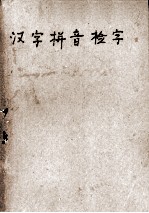 汉字拼音检字